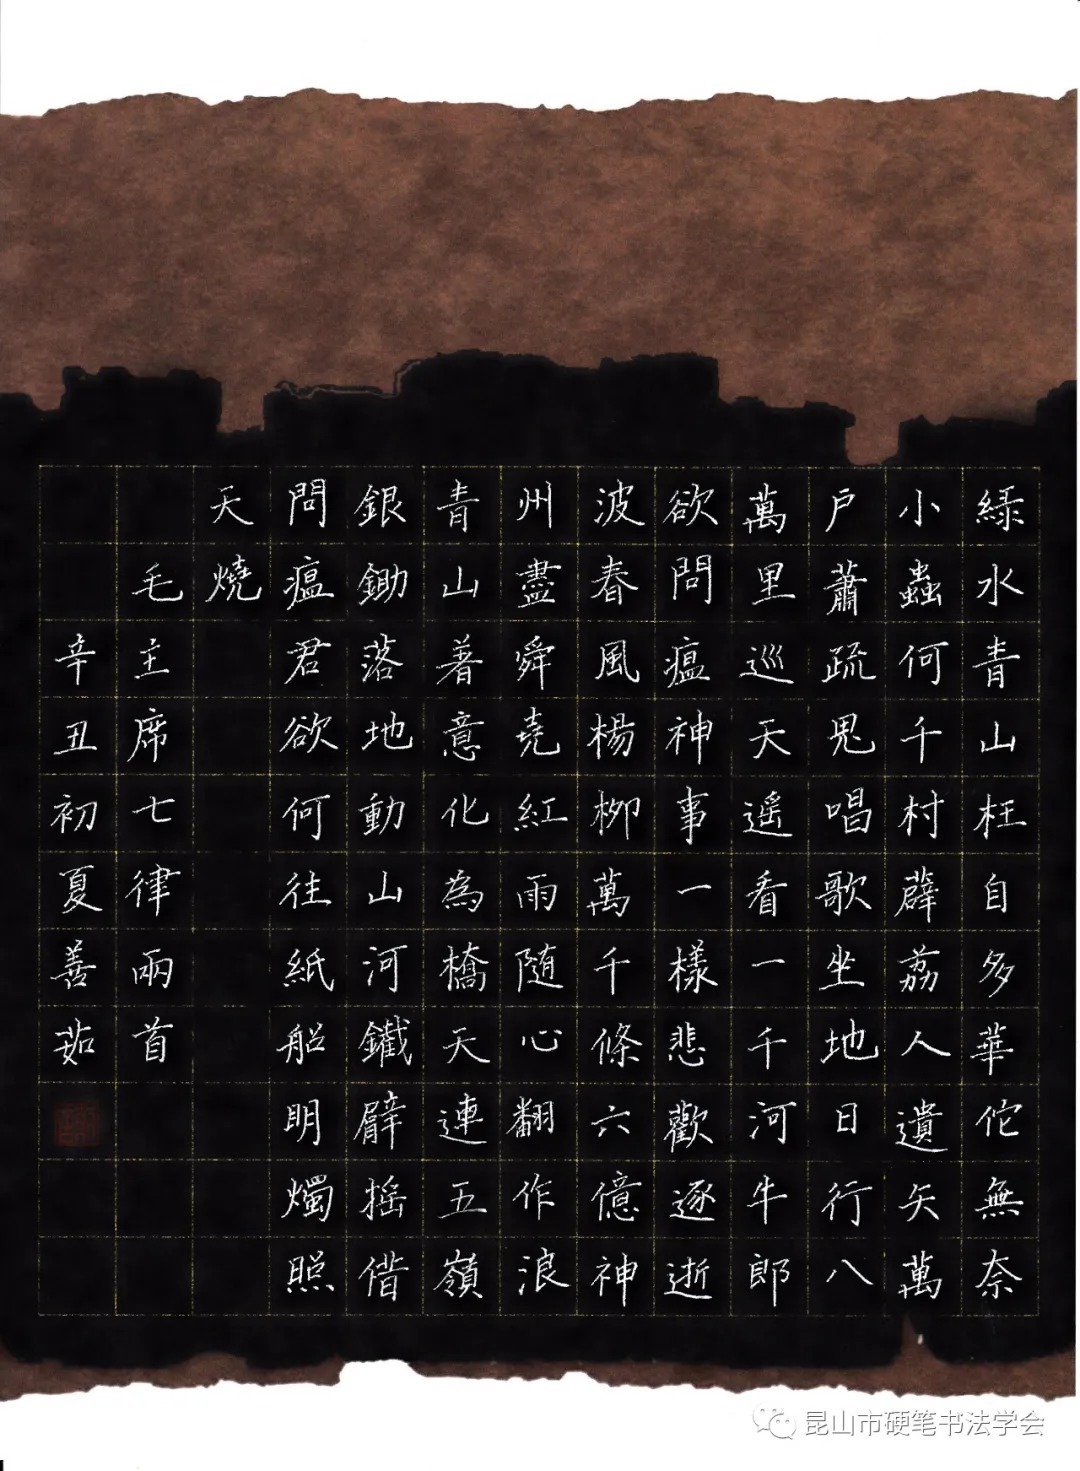 綠水青山枉自多華佗無奈
小蟲何千村薜荔人遺矢萬
戶蕭疏鬼唱歌坐地日行八
萬里巡天遙看一千河牛郎
欲問瘟神事一樣悲歡逐逝
波春風楊柳萬千條六億神
州盡舜堯紅雨随心翻作浪
青山著意化為橋天連五嶺
銀鋤落地動山河鐵臂搖借
問瘟君欲何往紙船明燭照
天燒
毛主席七律兩首
辛丑初夏善茹
昆山市硬笔书法学会